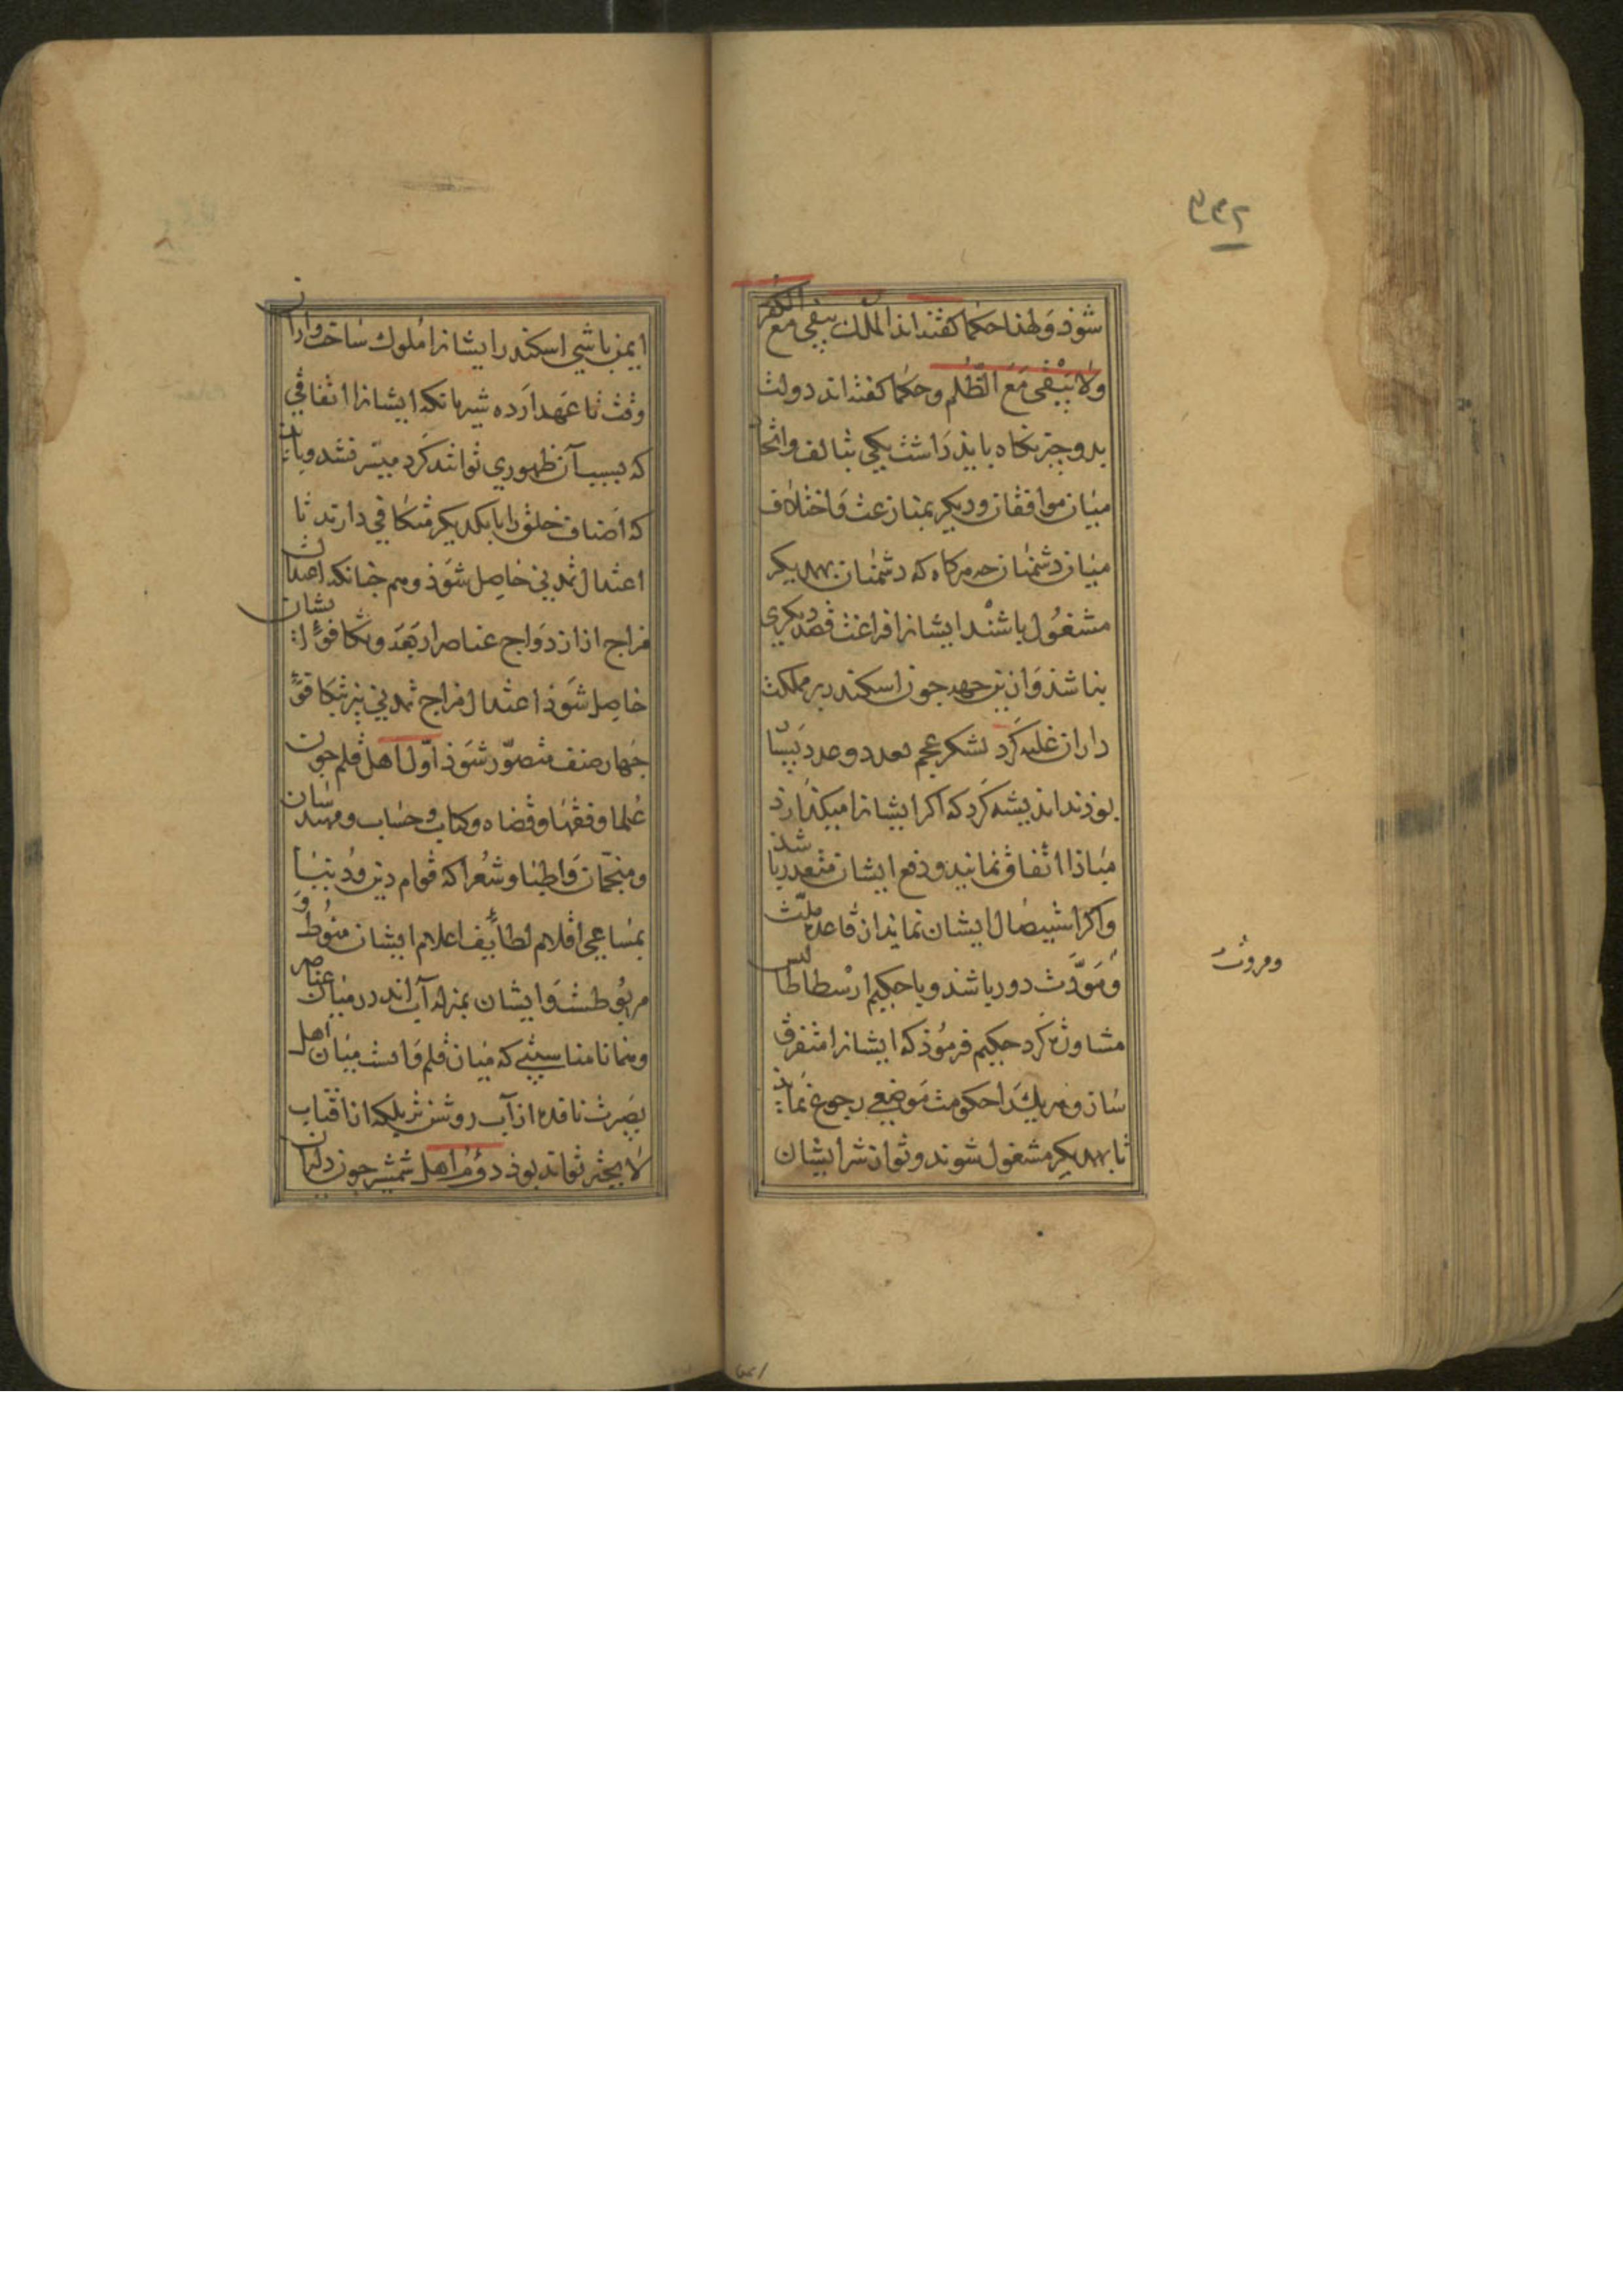 ۲۳۲
شوذ ولهذا حكما كفته‌اند الملك يبقى مع الكفر
ولا يبقى مع الظلم وحكما كفته‌اند دولت
بدو چيز نكاه بايذ داشت يكى بتالف و اتحاد
ميان موافقان وديكر بمنازعت و اختلاف
ميان دشمنان چه هركاه كه دشمنان بهم ديكر
مشغول باشند ايشانرا فراغت قصد ديكرى
نباشذ و ازين جهت جون اسكندر بر مملكت
داران غلبه كرد لشكر عجم بعدد وعدد بسيا
بوذند انديشه كرد كه اكر ايشانرا ميكذارد
مباذا اتفاق نمايند و دفع ايشان متعدر باشذ
واكر استيصال ايشان نمايد از قاعده ملت
ومودت دور باشذ و با حكيم ارسطاطاليس
مشاورة كرد حكيم فرموذ كه ايشانرا متفرق
ساز وهريك را حكومت موضعى رجوع نماى
تا بهم ديكر مشغول شوند وتو از شر ايشان
ومروت
ايمن باشى اسكندر ايشانرا ملوك ساخت و از آن
وقت تا عهد اردشير بابكه ايشانرا اتفاقى
كه بسبب آن ظهورى توانند كرد ميسر نشد و بايذ
كه اصناف خلق را با يكديكر متكافى دارند تا
اعتدال تمدنى حاصل شوذ وهم جنانكه اعتدال
مزاج از ازدواج عناصر اربعه و تكافؤ ايشان
حاصل شوذ اعتدال مزاج تمدنى نيز بتكافؤ
جهار صنف متصور شوذ اول اهل قلم جون
علما و فقها و قضاه و كتاب و حساب و مهندسان
و منجمان و اطبا و شعرا كه قوام دين و دنيا
بمساعى اقلام لطايف اعلام ايشان منوط و
مربوطست و ايشان بمنزله آب‌اند در ميان عناصر
وهمانا مناسبتى كه ميان قلم و آبست ميان اهل
بصيرت ناقده از آب روشن‌تر بلكه از آفتاب
لايح‌تر تواند بوذ دوم اهل شمشير جون دليران